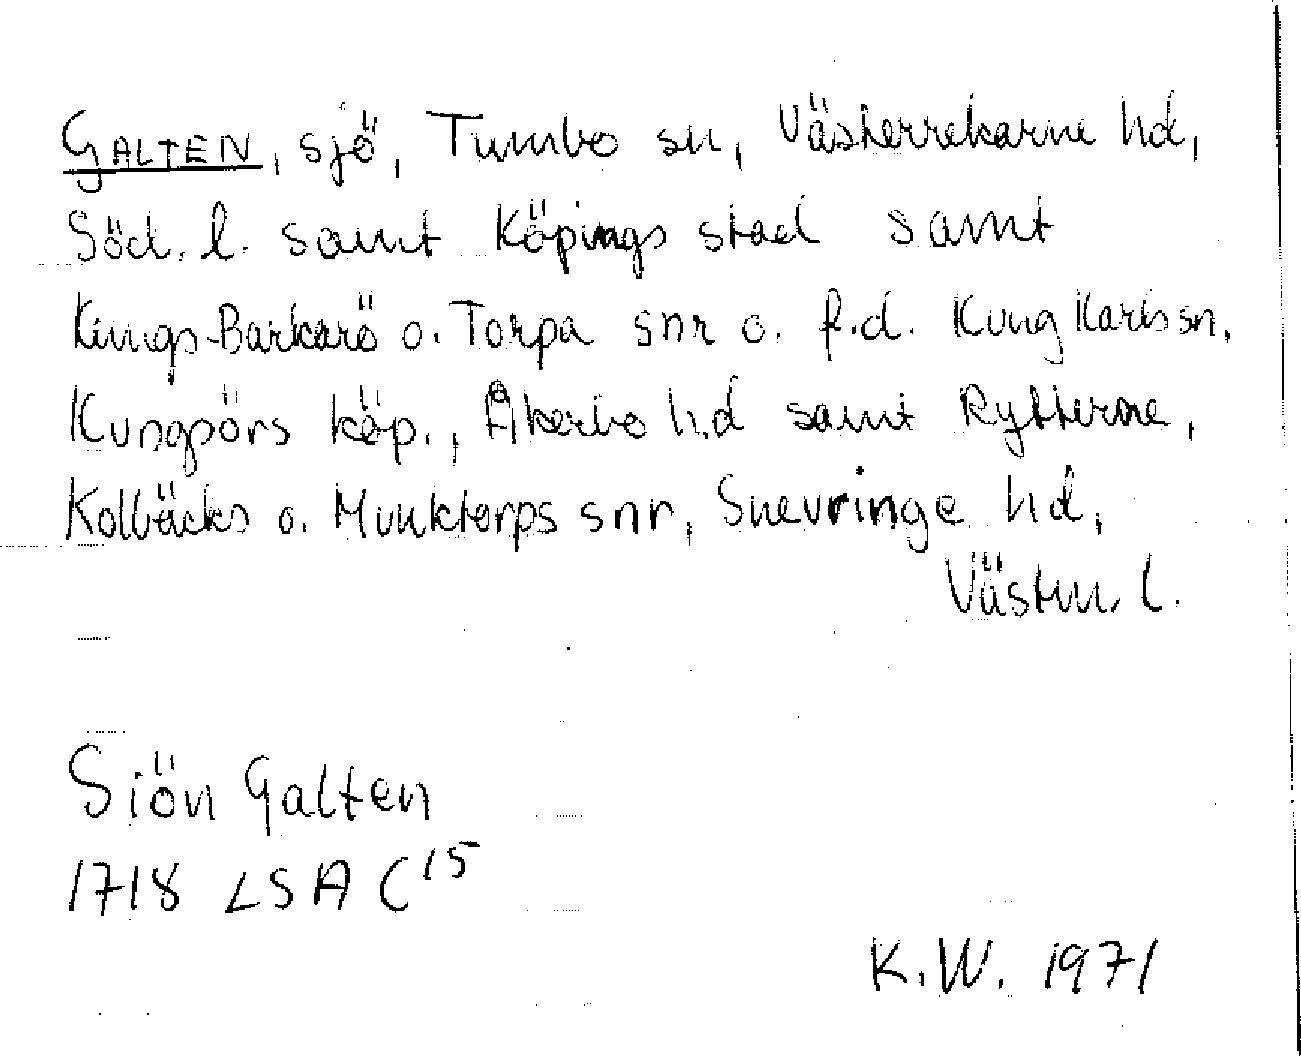 GALTEN, sjö, Tumbo sn, Västerrekarne hd,
Söd. l. samt Köpings stad samt
Kungs-Barkarö o. Torpa snr o. f.d. Kung Karls sn,
Kungsörs köp., Åkerbo hd samt Rytterne,
Kolbäcks o. Munktorps snr, Snevringe hd,
Västm. l.
Siön Galten
1718 LSA C15
K.W. 1971